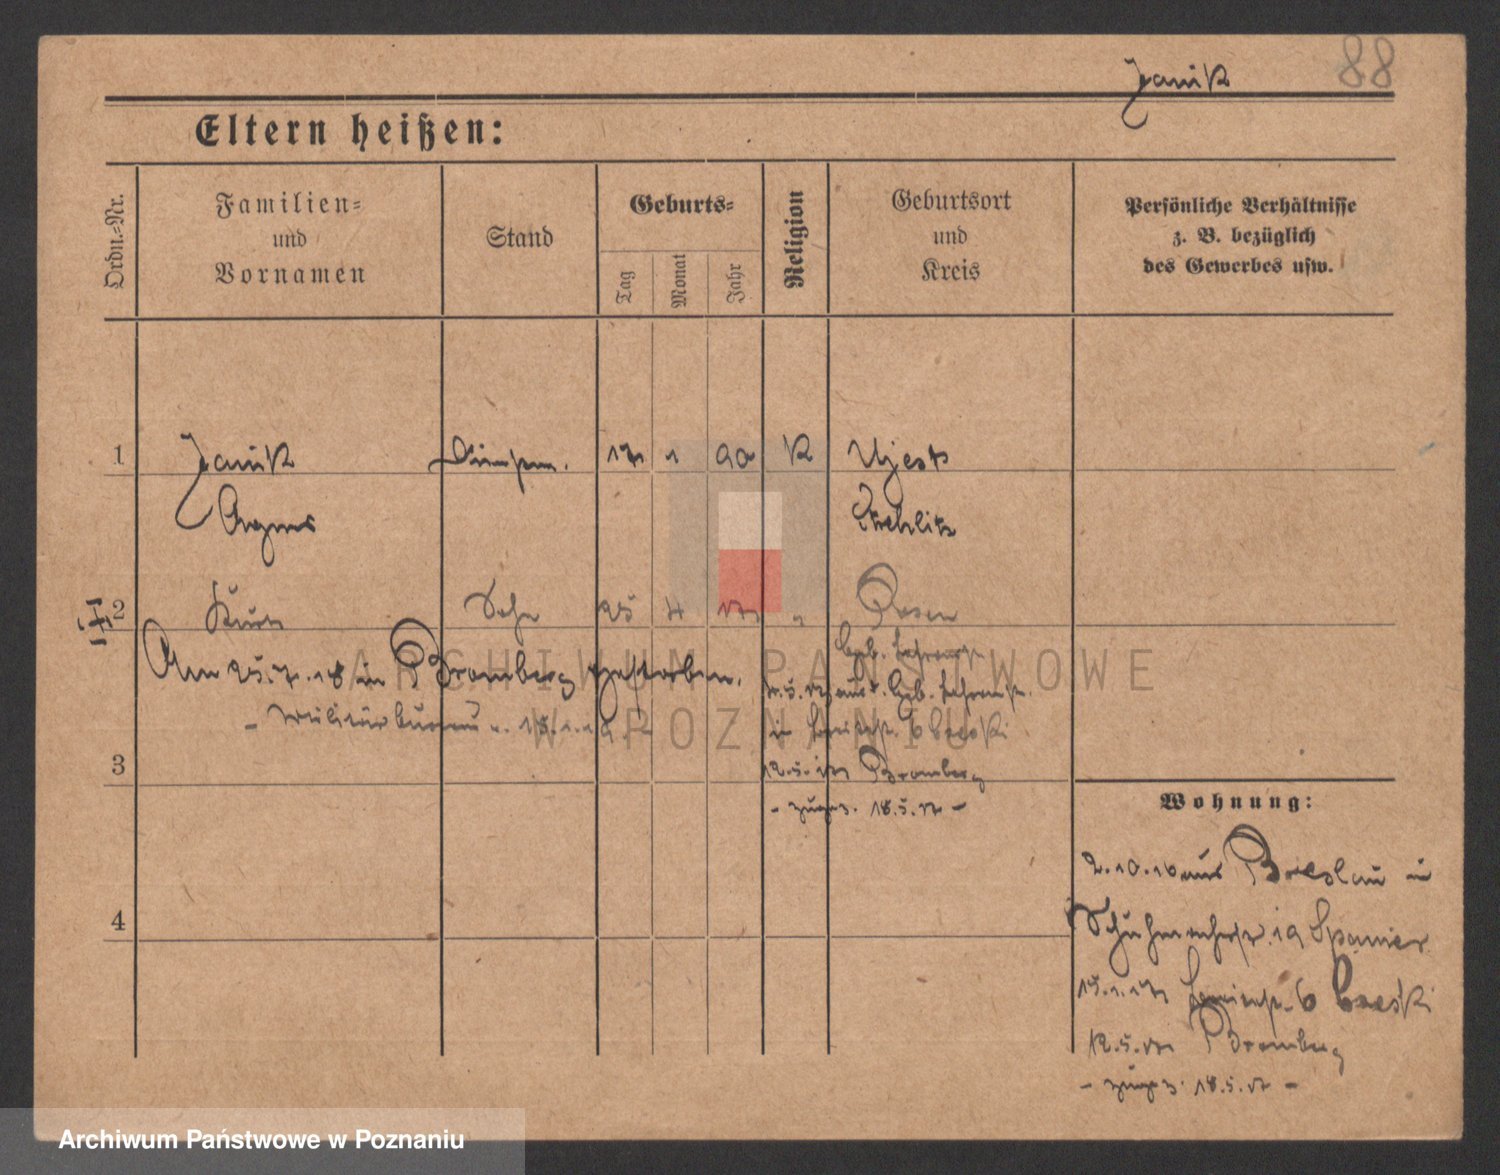 88
Janik
Eltern heißen:
Ordn.-Nr.
Familien-
und
Vornamen
Stand
Geburts-
Tag
Monat
Jahr
Religion
Geburtsort
und
Kreis
Persönliche Verhältnisse
z. B. bezüglich
des Gewerbes usw.
1 Janik 17 1 90 K Ujest
Agnes Strehlitz
2 Kurt Sohn 25 4 17 " Posen
Am 25.7.18 in Bromberg gestorben.
- Militärbureau
3
12.5.17 Bromberg
- zugez. 18.5.17 -
Wohnung:
2.10.16 aus Breslau in
4
19 Spanier
15.1.17 6 Breski
12.5.17 Bromberg
- zugez. 18.5.17 -
ARCHIWUM PAŃSTWOWE
W POZNANIU
Archiwum Państwowe w Poznaniu